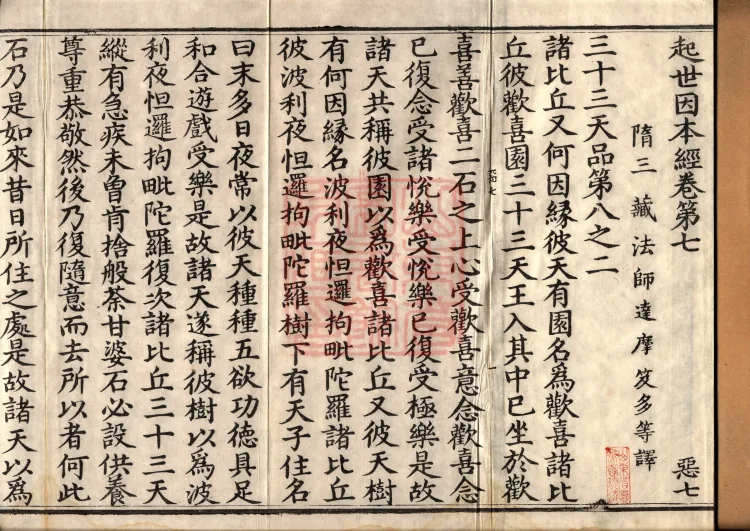 起世因本經卷第七 惡七
隋三藏法師達摩笈多等譯
三十三天品第八之二
諸比丘又何因緣彼天有園名爲歡喜諸比
丘彼歡喜園三十三天王入其中已坐於歡
喜善歡喜二石之上心受歡喜意念歡喜念
已復念受諸悅樂受悅樂已復受極樂是故
諸天共稱彼園以爲歡喜諸比丘又彼天樹
有何因緣名波利夜怛邏拘毗陀羅諸比丘
彼波利夜怛邏拘毗陀羅樹下有天子住名
曰末多日夜常以彼天種種五欲功德具足
和合遊戲受樂是故諸天遂稱彼樹以爲波
利夜怛邏拘毗陀羅復次諸比丘三十三天
縱有急疾未曾肯捨般荼甘婆石必設供養
尊重恭敬然後乃復隨意而去所以者何此
石乃是如來昔日所住之處是故諸天以爲